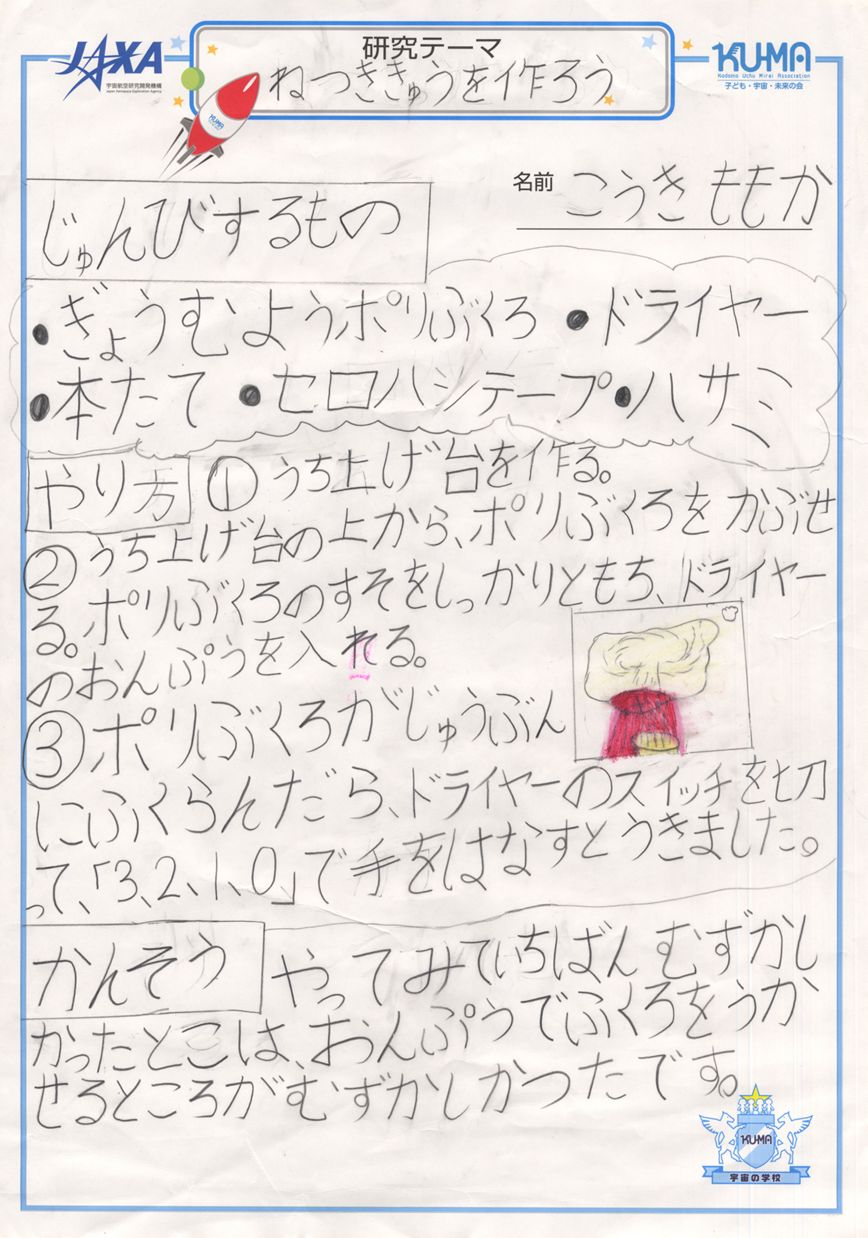 JAXA
宇宙航空研究開発機構
Japan Aerospace Exploration Agency
研究テーマ
ねつききゅうを作ろう
KUMA
KUMA
Kodomo Uchu Mirai Association
子ども・宇宙・未来の会
名前 こうき ももか
じゅんびするもの
●ぎょうむようポリぶくろ ●ドライヤー
●本たて ●セロハンテープ ●ハサミ
やり方 ①うち上げ台を作る。
②うち上げ台の上から、ポリぶくろをかぶせ
る。ポリぶくろのすそをしっかりともち、ドライヤー
のおんぷうを入れる。
③ポリぶくろがじゅうぶん
にふくらんだら、ドライヤーのスイッチを切
って、「3、2、1、0」で手をはなすとうきました。
かんそう やってみていちばんむずかし
かったとこは、おんぷうでふくろをうか
せるところがむずかしかったです。
KUMA
宇宙の学校